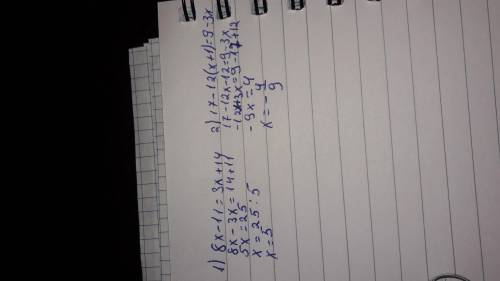 1) 8x-11=3x+14
8x-3x=14+11
5x=25
x=25:5
x=5
2) 17-12(x+1)=9-3x
17-12x-12=9-3x
-12x+3x=9-17+12
-9x=4
x=-4/9